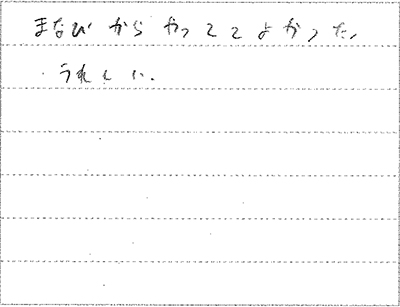 まなびからやっててよかった。
うれしい。